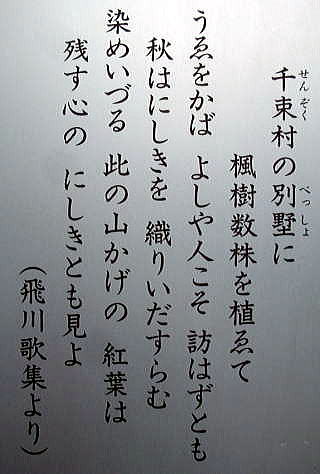 千束村の別墅に
せんぞく
べっしょ
楓樹数株を植ゑて
うゑをかば よしや人こそ 訪はずとも
秋はにしきを 織りいだすらむ
染めいづる 此の山かげの 紅葉は
残す心の にしきとも見よ
(飛川歌集より)